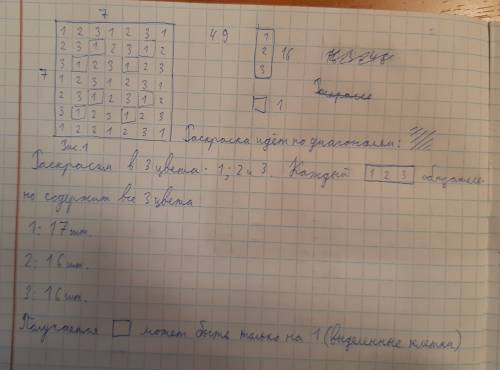 7
1 2 3 1 2 3 1
2 3 1 2 3 1 2
3 1 2 3 1 2 3
7
1 2 3 1 2 3 1
2 3 1 2 3 1 2
3 1 2 3 1 2 3
1 2 3 1 2 3 1
Рис.1
49
1
2
3
16
1
Раскраска идёт по диагоналям:
Раскрасим в 3 цвета: 1; 2 и 3. Каждый 1 2 3 обязатель-
но содержит все 3 цвета
1: 17 шт.
2: 16 шт.
3: 16 шт.
Получается может быть только на 1 (выделенные клетки)